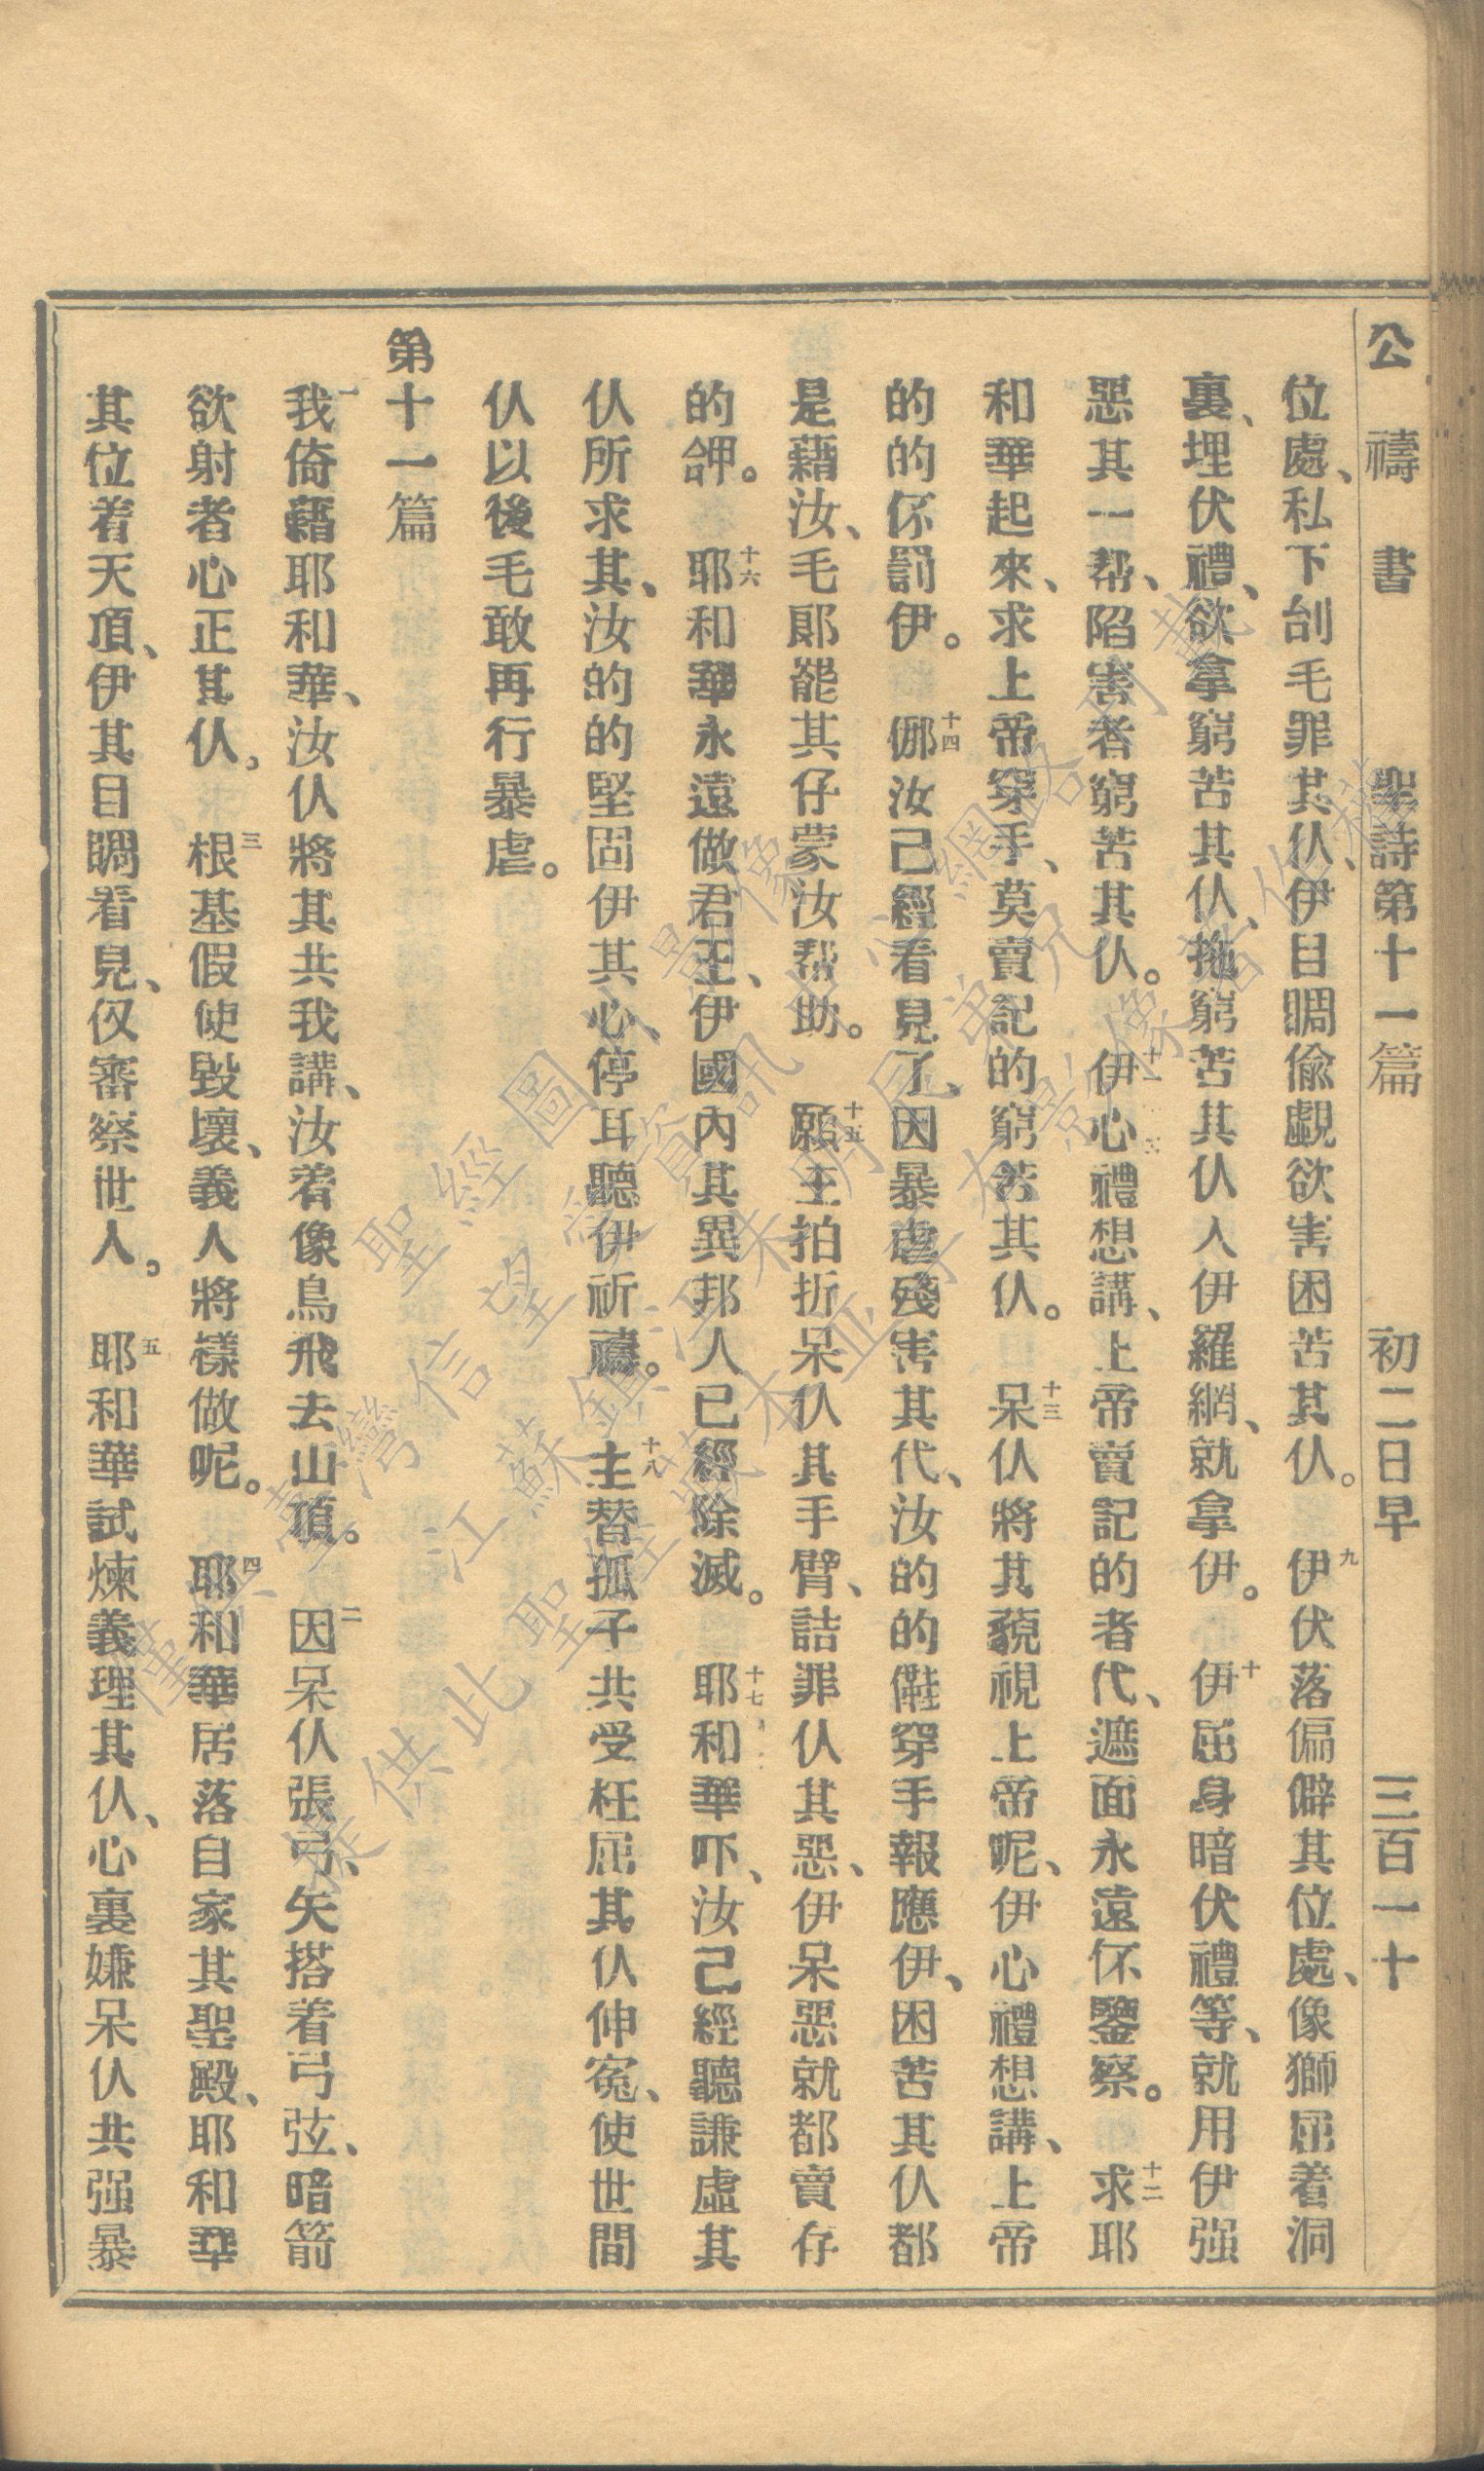 公禱書 聖詩第十一篇 初二日早 三百一十
位處、私下刣毛罪其仈、伊目睭偷覷欲害困苦其仈。九伊伏落偏僻其位處、像獅屈着洞
裏、埋伏禮、欲拿窮苦其仈、拖窮苦其仈入伊羅網、就拿伊。十伊屈身暗伏禮等、就用伊强
惡其一帮、陷害者窮苦其仈。十一伊心禮想講、上帝賣記的者代、遮面永遠伓鑒察。十二求耶
和華起來、求上帝穿手、莫賣記的窮苦其仈。十三呆仈將其藐視上帝呢、伊心禮想講、上帝
的的伓罰伊。十四㑚汝己經看見了、因暴虐殘害其代、汝的的穿手報應伊、困苦其仈都
是藉汝、毛郎罷其仔蒙汝帮助。十五願主拍折呆仈其手臂、詰罪仈其惡、伊呆惡就都賣存
的。十六耶和華永遠做君王、伊國內其異邦人已經除滅。十七耶和華吓、汝己經聽謙虛其
仈所求其、汝的的堅固伊其心、停耳聽伊祈禱。十八主替孤子共受枉屈其仈伸寃、使世間
仈以後毛敢再行暴虐。
第十一篇
一我倚藉耶和華、汝仈將其共我講、汝着像鳥飛去山頂。二因呆仈張弓、矢搭着弓弦、暗箭
欲射者心正其仈。三根基假使毀壞、義人將樣做呢。四耶和華居落自家其聖殿、耶和華
其位着天頂、伊其目睭看見、仅審察世人。五耶和華試煉義理其仈、心裏嫌呆仈共强暴
聖經圖
江蘇鎮江朱明月弟兄
提供此聖